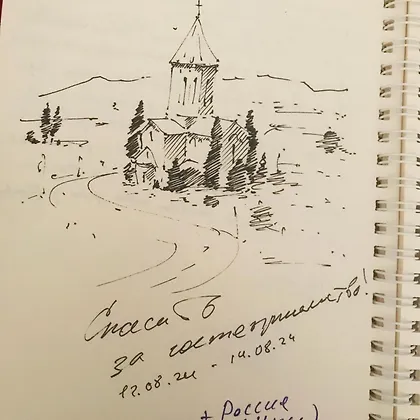 Спасибо
за гостеприимство!
12.08.24 - 14.08.24
+ Россия